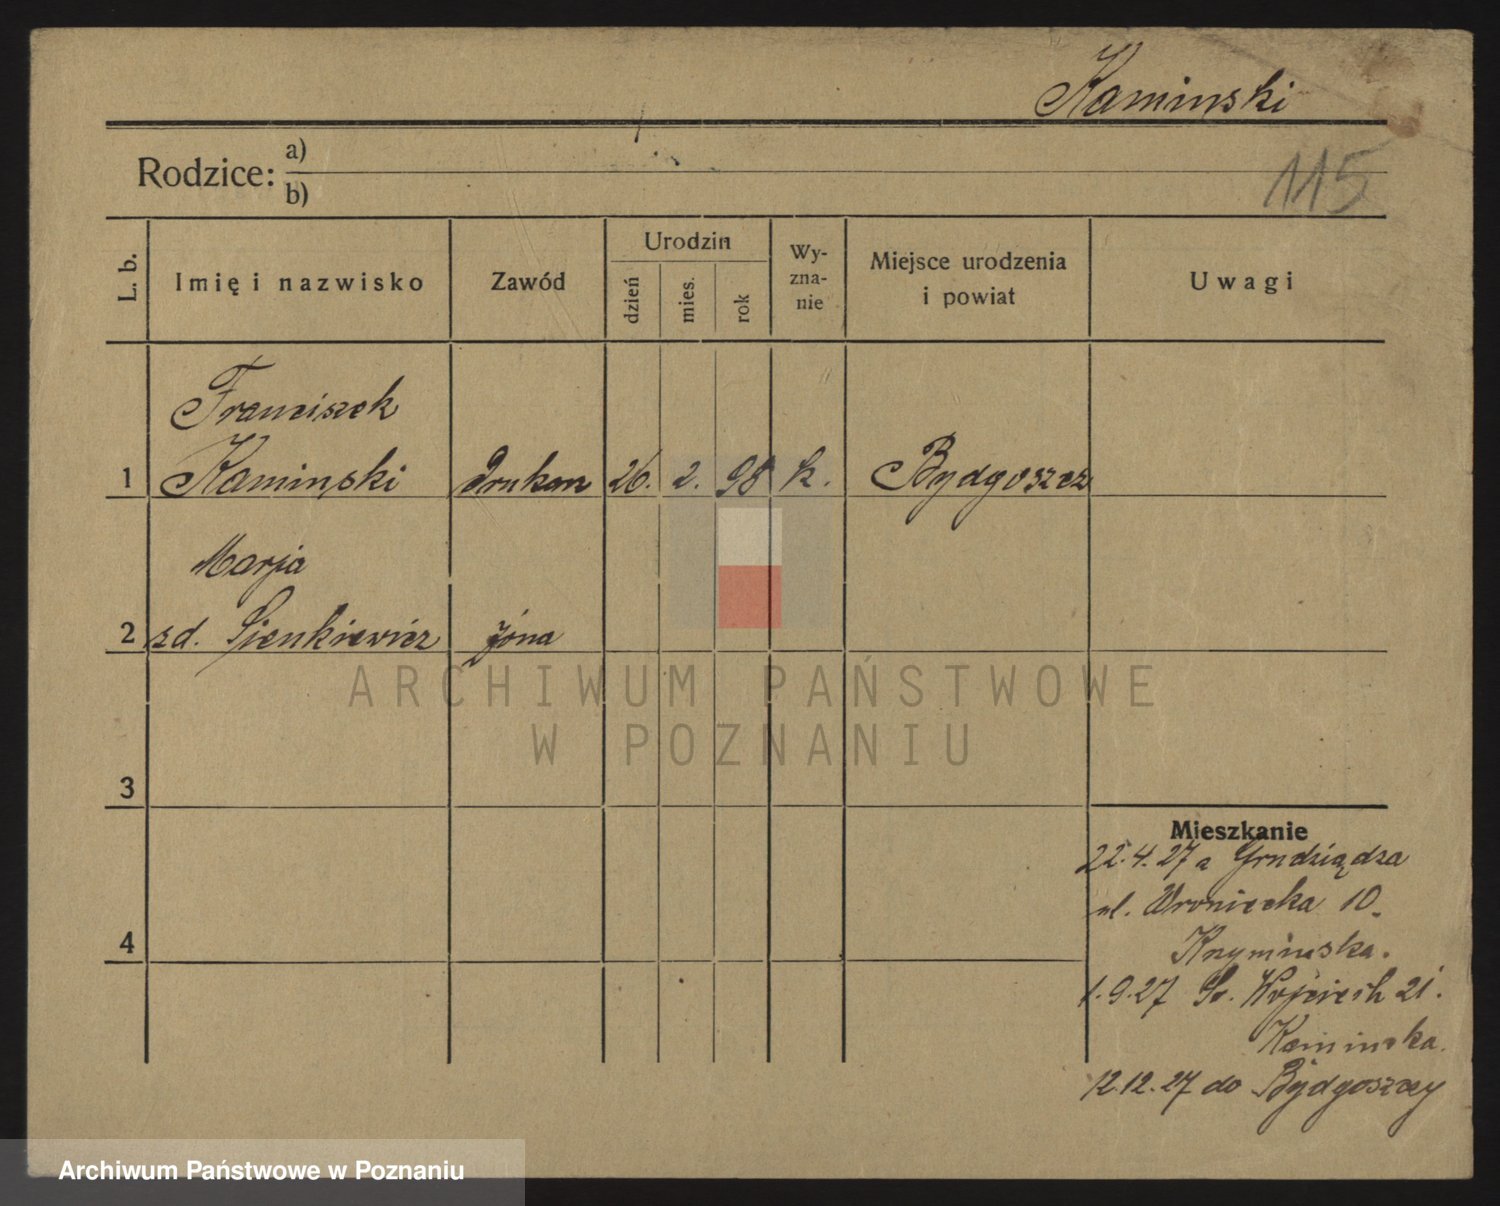 Kaminski
115
Rodzice: a)
b)
L. b.
Imię i nazwisko
Zawód
Urodzin
dzień
mies.
rok
Wy-
zna-
nie
Miejsce urodzenia
i powiat
Uwagi
Franciszek
1 Kaminski Drukarz 26. 2. 98 k. Bydgoszcz
Marja
2 zd. Sienkiewicz żona
3
4
Mieszkanie
22.4.27 z Grudziądza
ul. Wroniecka 10.
1.9.27 Św. Wojciech 21.
Kaminska.
12.12.27 do Bydgoszczy
ARCHIWUM PAŃSTWOWE
W POZNANIU
Archiwum Państwowe w Poznaniu